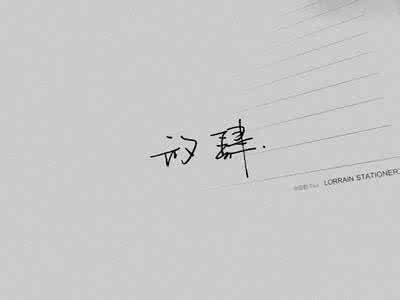 放肆.
LORRAIN STATIONERY